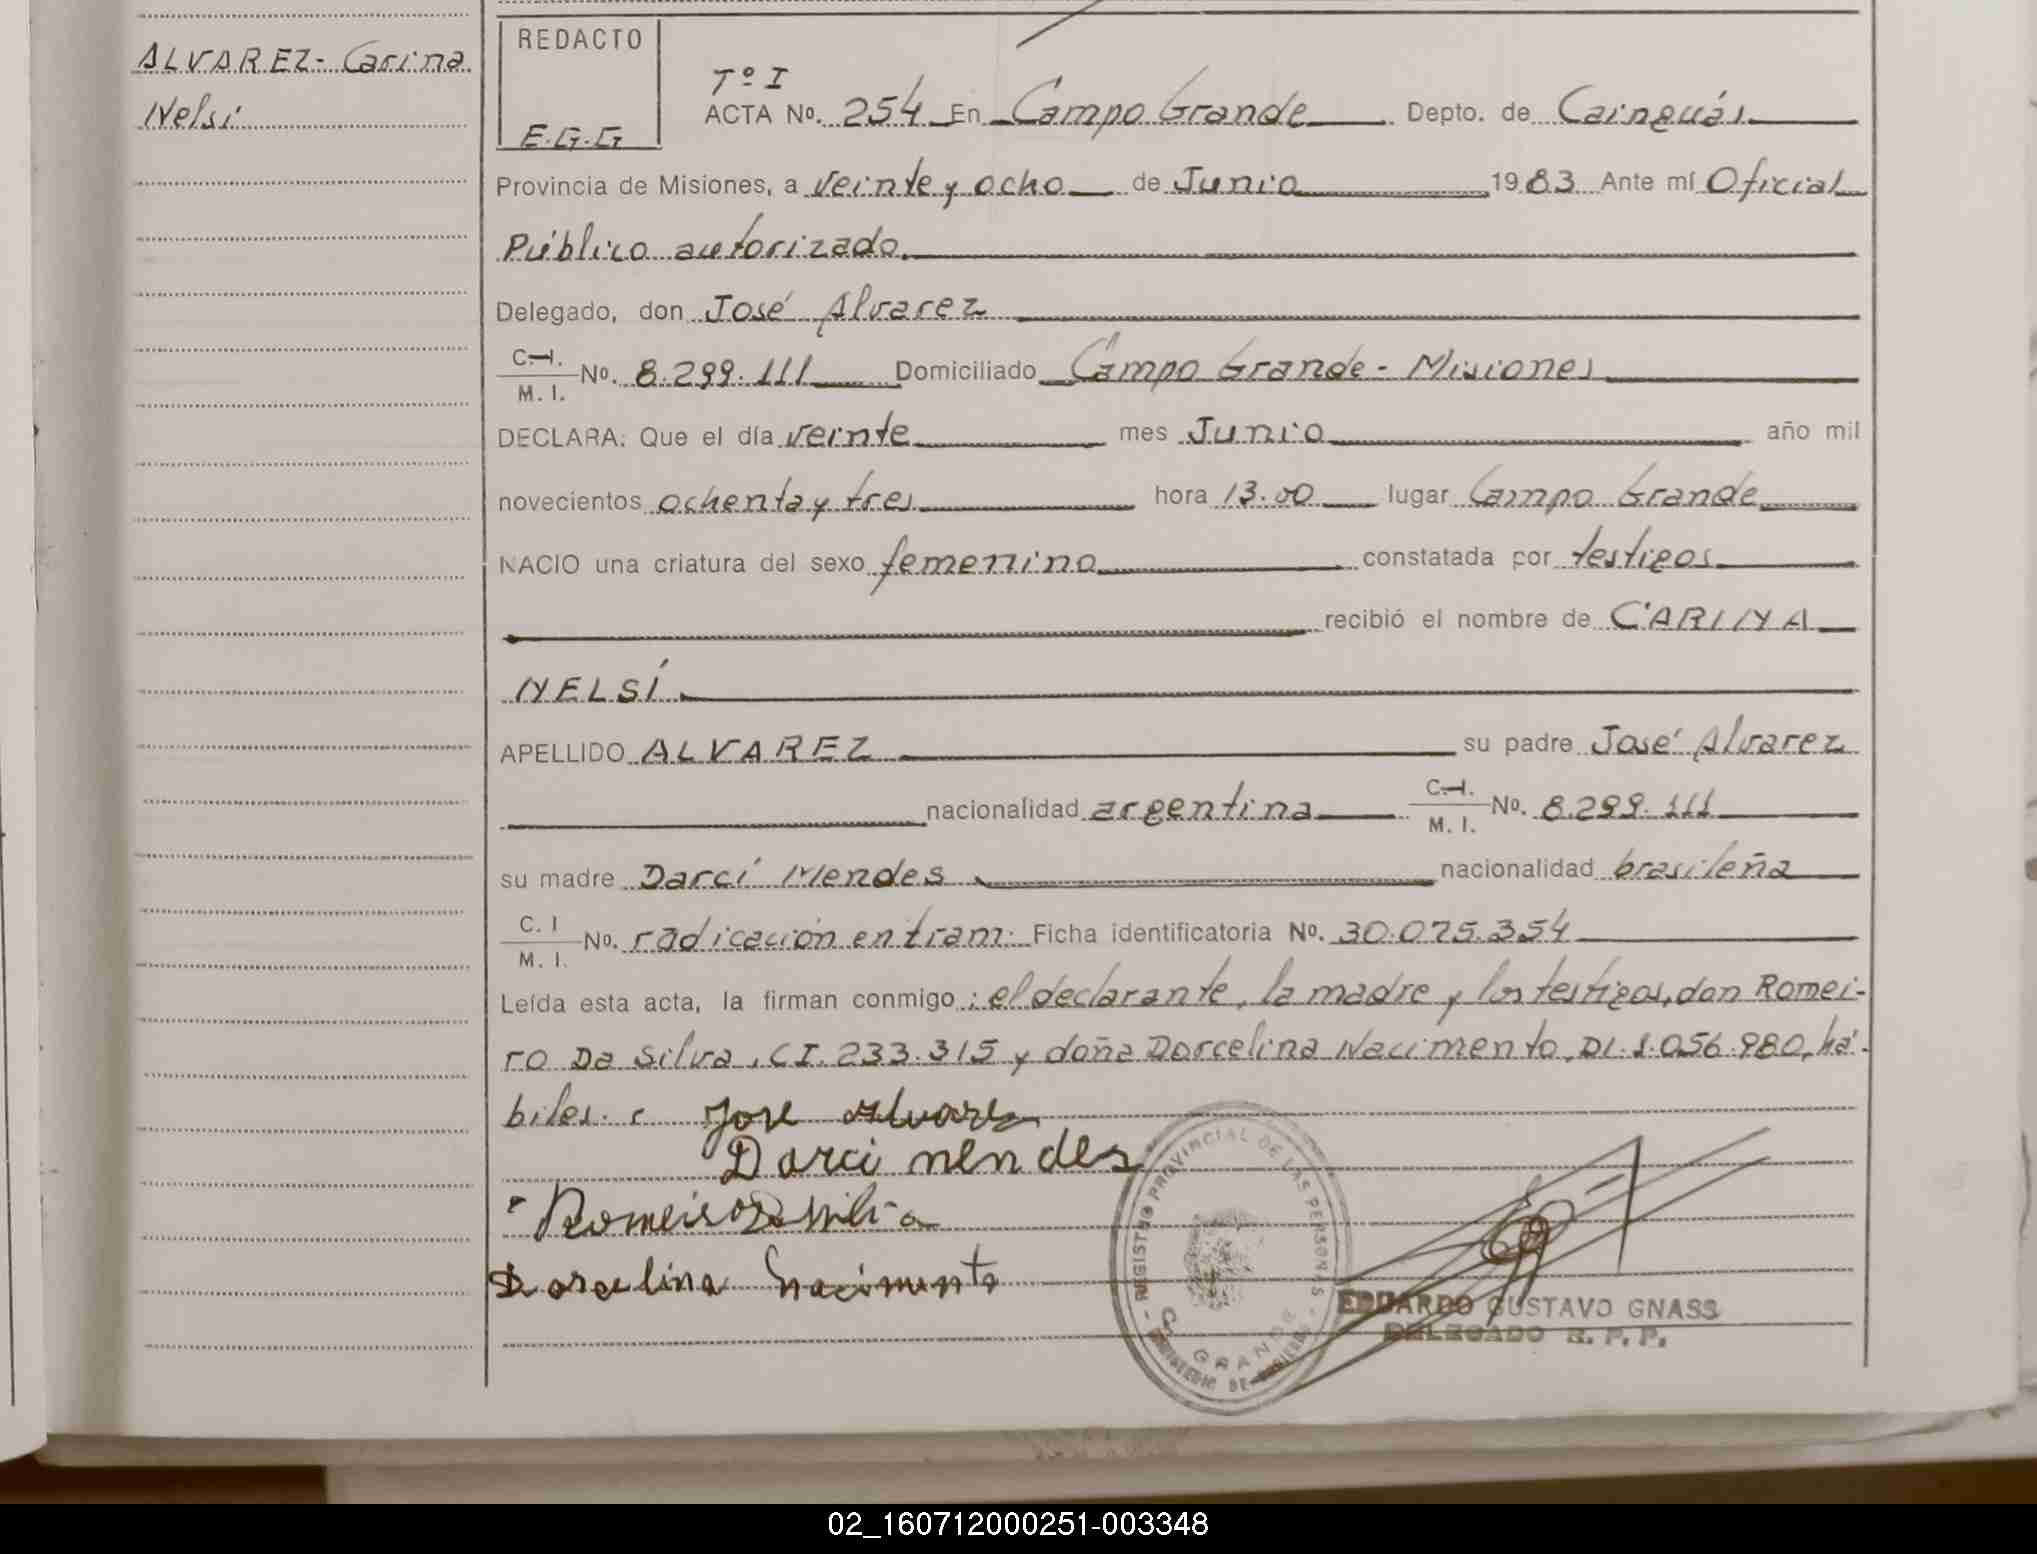 ALVAREZ- Carina
Nelsi
REDACTO
E.G.G
Tº I
ACTA No. 254 En Campo Grande Depto. de Cainguás
Provincia de Misiones, a veinte y ocho de Junio 1983 Ante mí Oficial
Público autorizado.
Delegado, don José Alvarez
C.I.
M. I. No. 8.299.111 Domiciliado Campo Grande - Misiones
DECLARA: Que el día veinte mes Junio año mil
novecientos ochenta y tres hora 13.00 lugar Campo Grande
NACIO una criatura del sexo femenino constatada por testigos
recibió el nombre de CARINA
NELSÍ
APELLIDO ALVAREZ su padre José Alvarez
nacionalidad argentina C.I.
M. I. No. 8.299.111
su madre Darcí Mendes nacionalidad brasileña
C. I
M. I. No. radicación en tram. Ficha identificatoria No. 30.075.354
Leída esta acta, la firman conmigo : el declarante, la madre y los testigos, don Romei-
ro Da Silva, CI. 233.315 y doña Dorcelina Nacimento, DI. 1.056.980, há-
biles.
Jose Alvarez
Darci mendes
Romeiro Da Silva
Dorcelina Nacimento
REGISTRO PROVINCIAL DE LAS PERSONAS
GRANDE
MINISTERIO DE GOBIERNO
EDUARDO GUSTAVO GNASS
DELEGADO R. P. P.
02_160712000251-003348